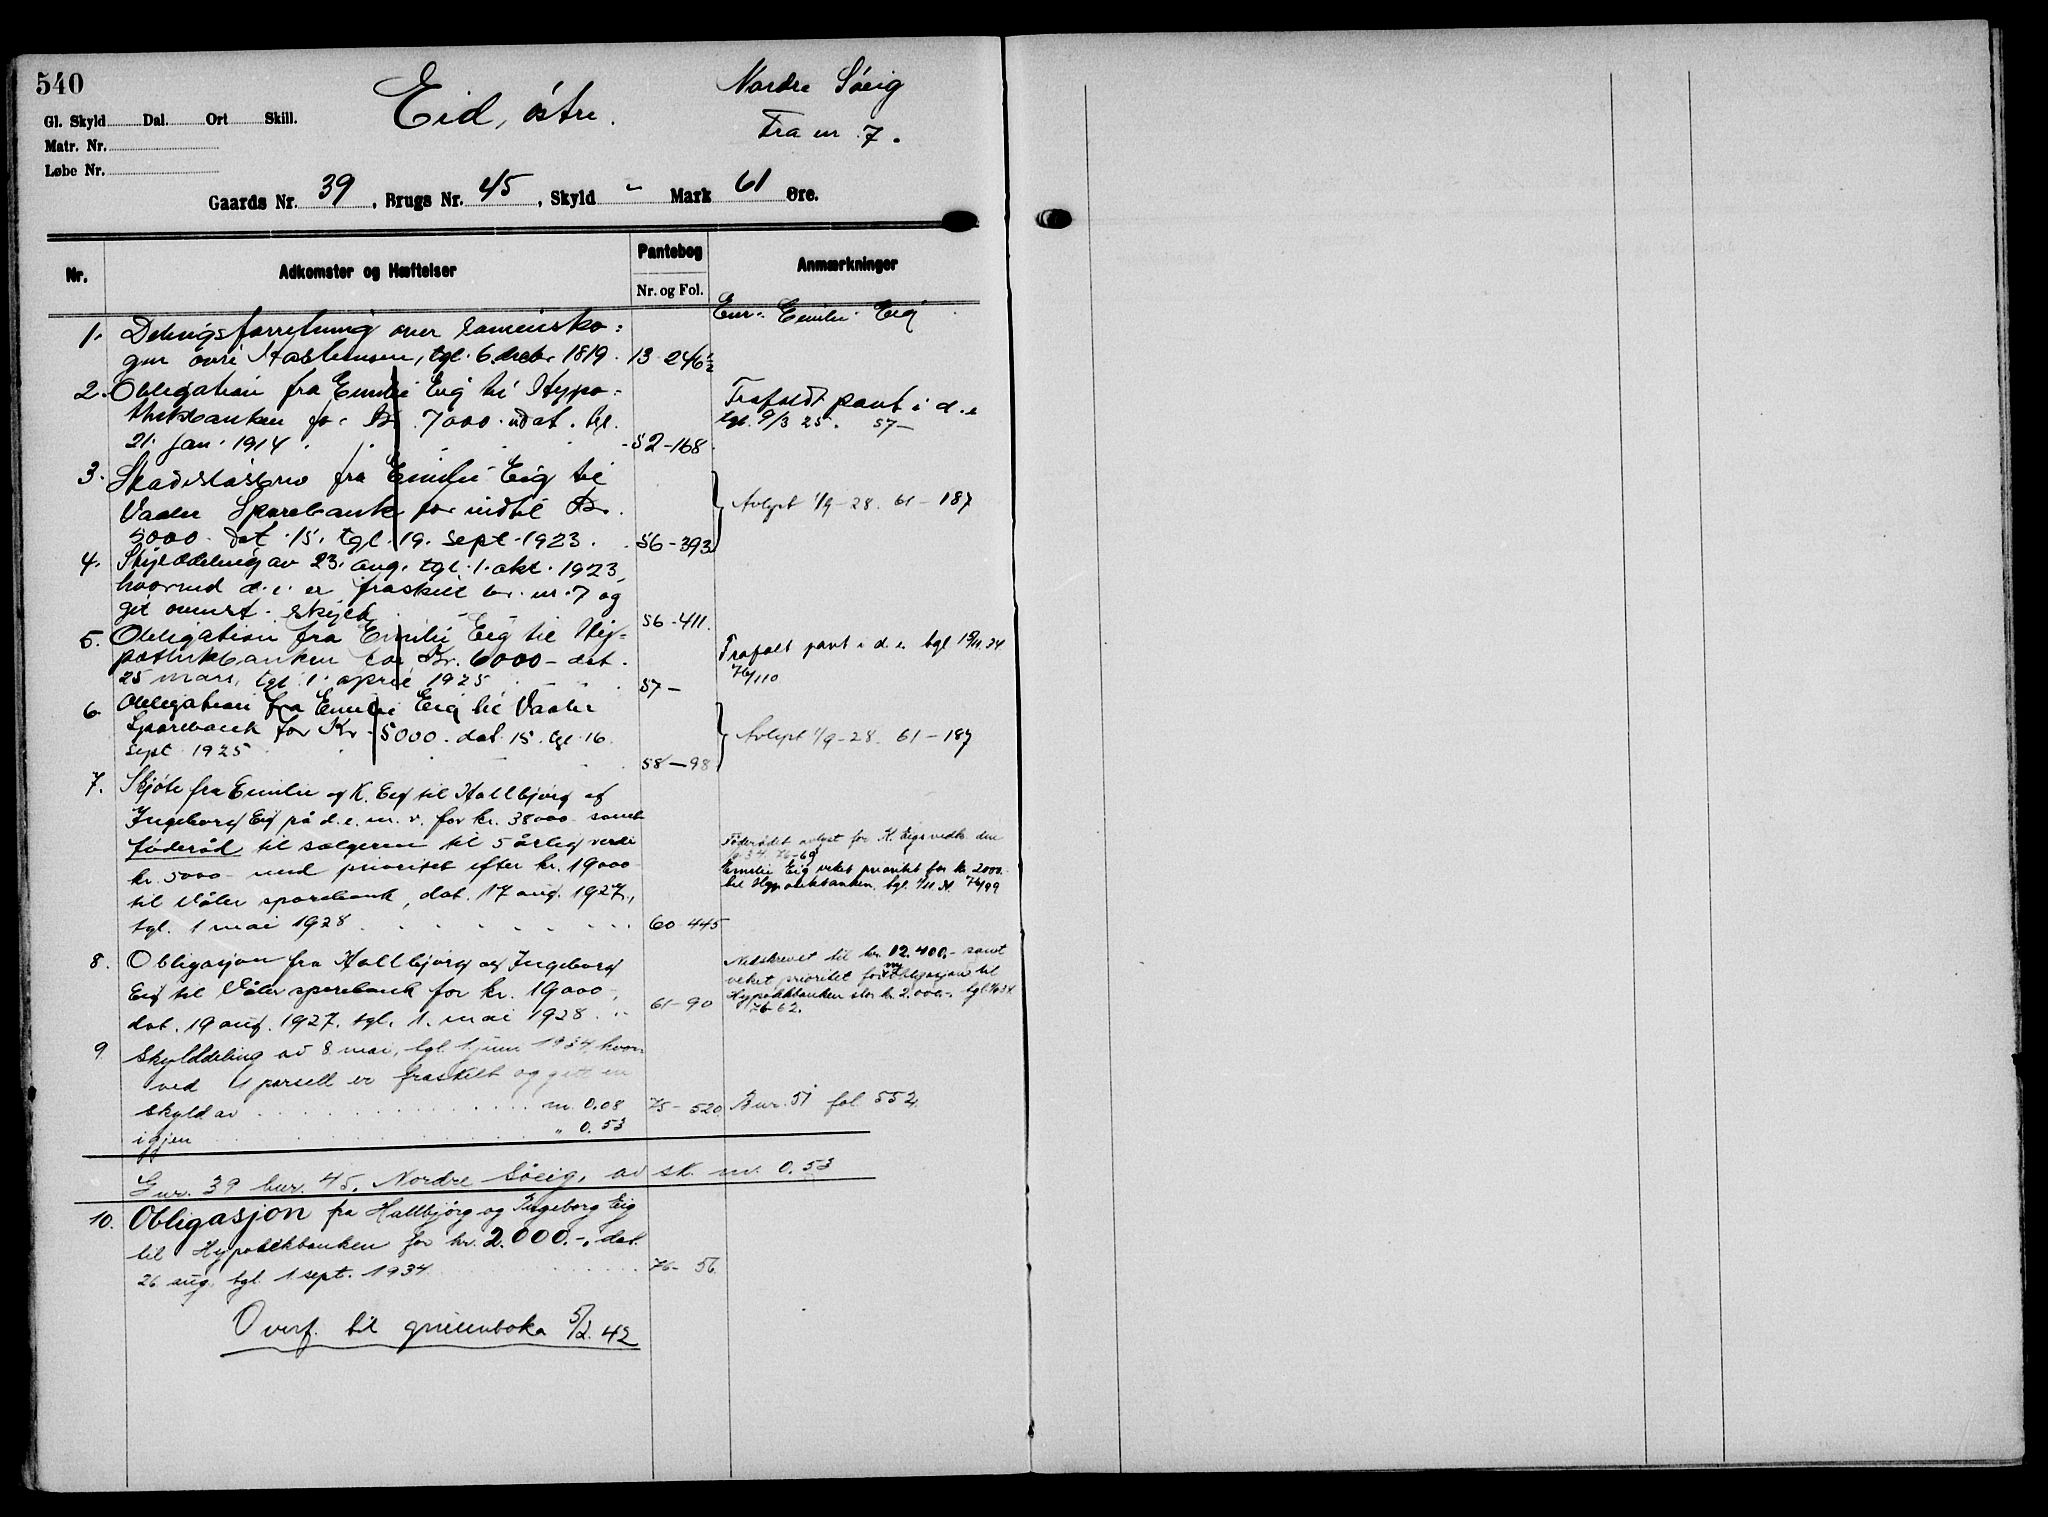 540
Eid, östre.
Nordre Söeig
Fra nr 7.
Gl. Skyld Dal. Ort Skill.
Matr. Nr.
Løbe Nr.
Gaards Nr. 39, Brugs Nr. 45, Skyld - Mark 61 Øre.
Nr. Adkomster og Hæftelser Pantebog Anmærkninger
Nr. og Fol.
Emilie Eig
1. Delingsforretning over
tgl. 6 1819. 13 246
2. Obligation fra Emilie Eig til Hypo-
thekbanken for Kr. 7000. udat. tgl.
21. jan. 1914 52-168
Frafaldt pant i d. e.
tgl. 9/3 25. 57-
3. Skadeslösbrev fra Emilie Eig til
Vaaler Sparebank for indtil Kr.
5000. dat. 15. tgl. 19. sept. 1923. 56-393
Avlyst 1/9-28. 61-187
4. Skylddeling av 23. aug. tgl. 1. okt. 1923,
hvorved d. e. er fraskilt br. nr. 7 og
git ovenst. skyld 56-411.
5. Obligation fra Emilie Eig til Hy-
pothekbanken for Kr. 6000- dat.
25 mars, tgl. 1. april 1925 57-
Frafalt pant i d. e. tgl 34
76/110
6. Obligation fra Emilie Eig til Vaaler
Sparebank for Kr. 5000. dat. 15. tgl. 16.
sept 1925 58-98
Avlyst 1/9-28. 61-187
7. Skjöte fra Emilie og K. Eig til Hallbjörg og
Ingeborg Eig på d. e. m. v. for kr. 38000 samt
föderåd til sælgerne til 5 årlig verdi
kr. 5000 med prioritet efter kr. 19000
til Våler sparebank, dat. 17 aug. 1927,
tgl. 1 mai 1928 60-445
Föderådet avlyst for K. Eigs vedk. den
34 76-69
Emilie Eig veket prioritet for kr. 2000.
til Hypotekbanken tgl. 1/11 34. 76/99
8. Obligasjon fra Hallbjörg og Ingeborg
Eig til Våler sparebank for kr. 19000-,
dat. 19 aug. 1927. tgl. 1. mai 1928. 61-90
Nedskrevet til kr. 12.400,- samt
veket prioritet for ny obligasjon til
Hypotekbanken stor kr. 2.000.- tgl.
76-62.
9. Skylddeling av 8. mai, tgl. 1. juni 1934, hvor-
ved 1 parsell er fraskilt og gitt en
skyld av m. 0.08 75-520 Bnr. 51 fol 552.
igjen " 0.53
Gnr. 39 bnr. 45. Nordre Söeig, av sk. m. 0.53
10. Obligasjon fra Hallbjörg og Ingeborg Eig
til Hypotekbanken for kr. 2.000.-, dat.
26 aug. tgl. 1 sept. 1934 76-56.
Overf. til grunnboka 5/2.42